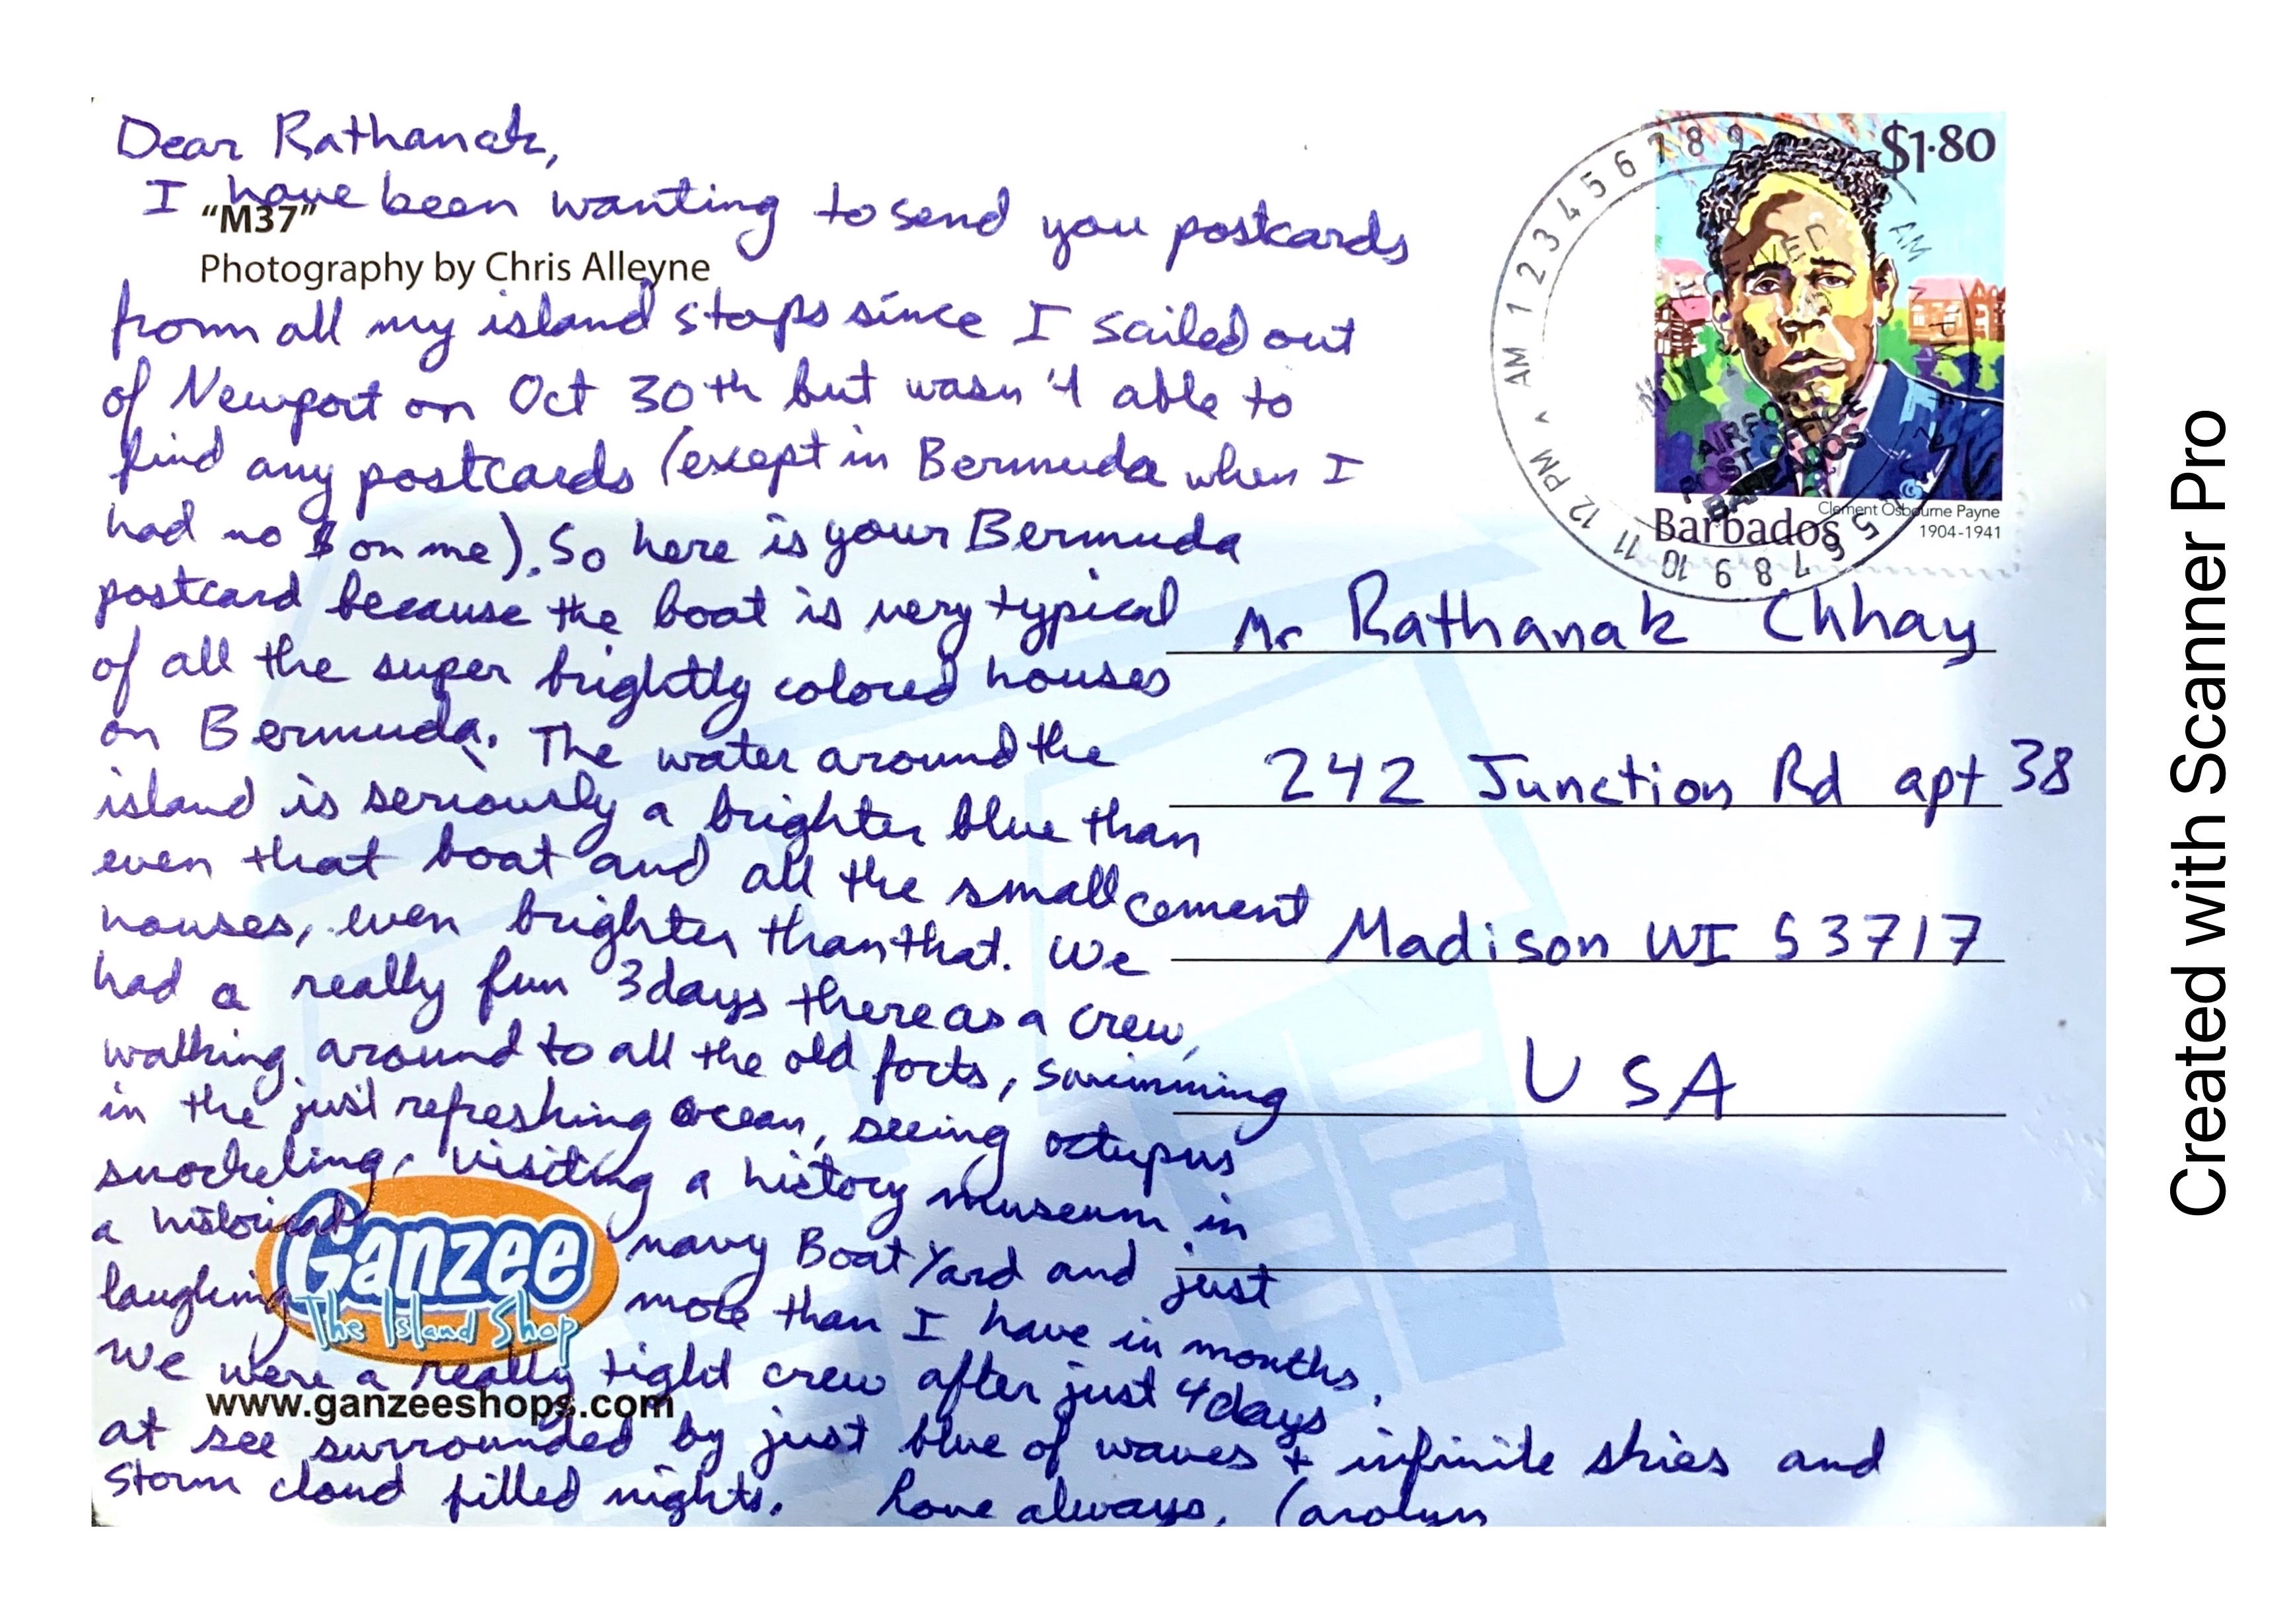 Dear Rathanak,
I have been wanting to send you postcards
"M37"
Photography by Chris Alleyne
from all my island stops since I sailed out
of Newport on Oct 30th but wasn't able to
find any postcards (except in Bermuda when I
had no $ on me). So here is your Bermuda
postcard because the boat is very typical
of all the super brightly colored houses
on Bermuda. The water around the
island is seriously a brighter blue than
even that boat and all the small cement
houses, even brighter than that. We
had a really fun 3 days there as a crew,
walking around to all the old forts, swimming
in the just refreshing ocean, seeing octupus
snorkeling, visiting a history museum in
a historical navy Boat Yard and just
laughing more than I have in months.
We were a really tight crew after just 4 days
at see surrounded by just blue of waves + infinite skies and
storm cloud filled nights. Love always, Carolyn
Ganzee
The Island Shop
www.ganzeeshops.com
$1.80
Clement Osbourne Payne
1904-1941
Barbados
AM 1 2 3 4 5 6 7 8 9
AM
12 PM
11 10 9 8 7 6 5
AIRPORT
POST OFFICE
BARBADOS
Mr Rathanak Chhay
242 Junction Rd apt 38
Madison WI 53717
USA
Created with Scanner Pro